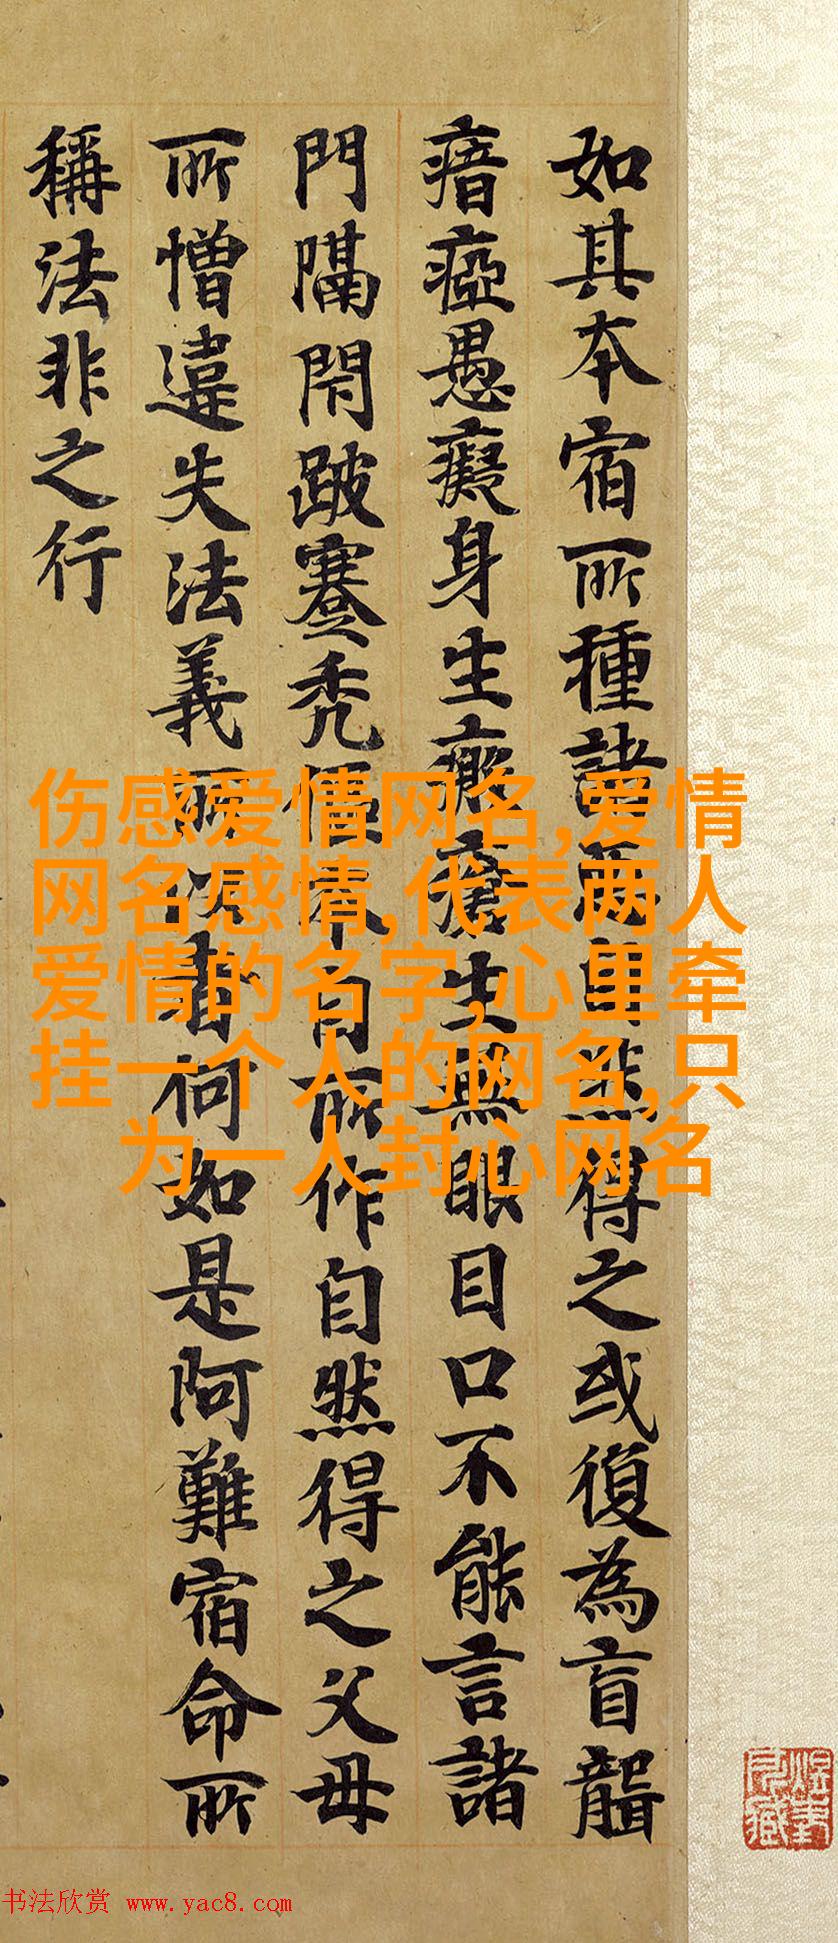 如其本宿所種諸自然得之或復為盲聾
瘖瘂愚癡身生瘡生無眼目口不能言諸
門隔閇跛蹇秃傴本自所作自然得之父母
所憎違失法義所以者何如是阿難宿命所
稱法非之行
伤感爱情网名,爱情
网名感情,代表两人
爱情的名字,心里牵
挂一个人的网名,只
为一人封心网名
书法欣赏 www.yac8.com